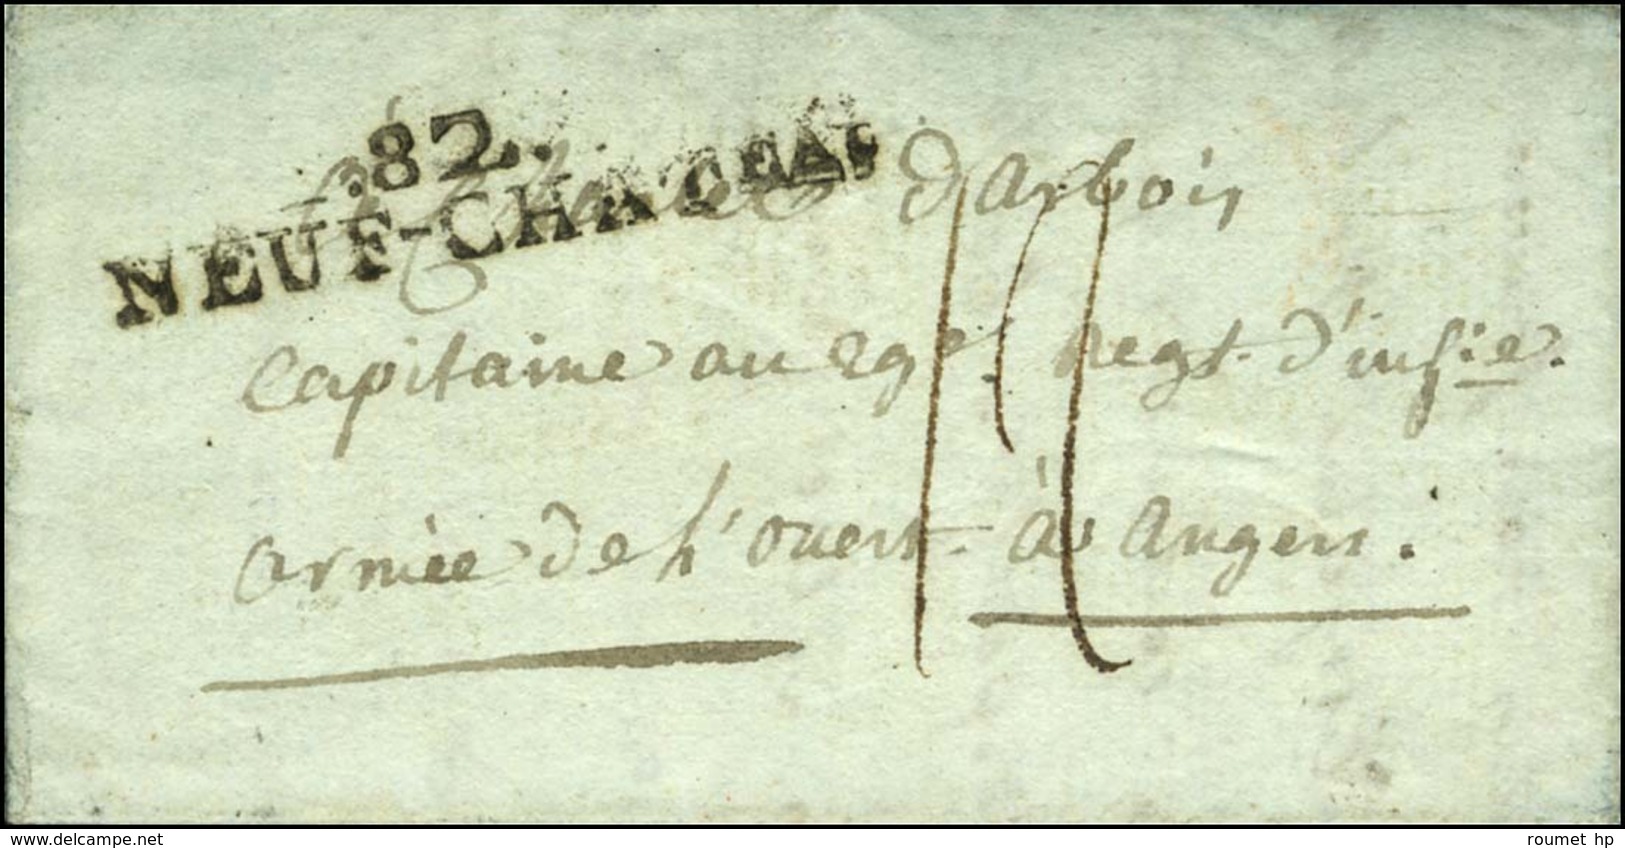 .82.
NEUF-CHATEAU
d'arbois
Capitaine au 29e. Regt. d'infie.
armée de l'ouest à Angers.
delcampe.net
roumet hp